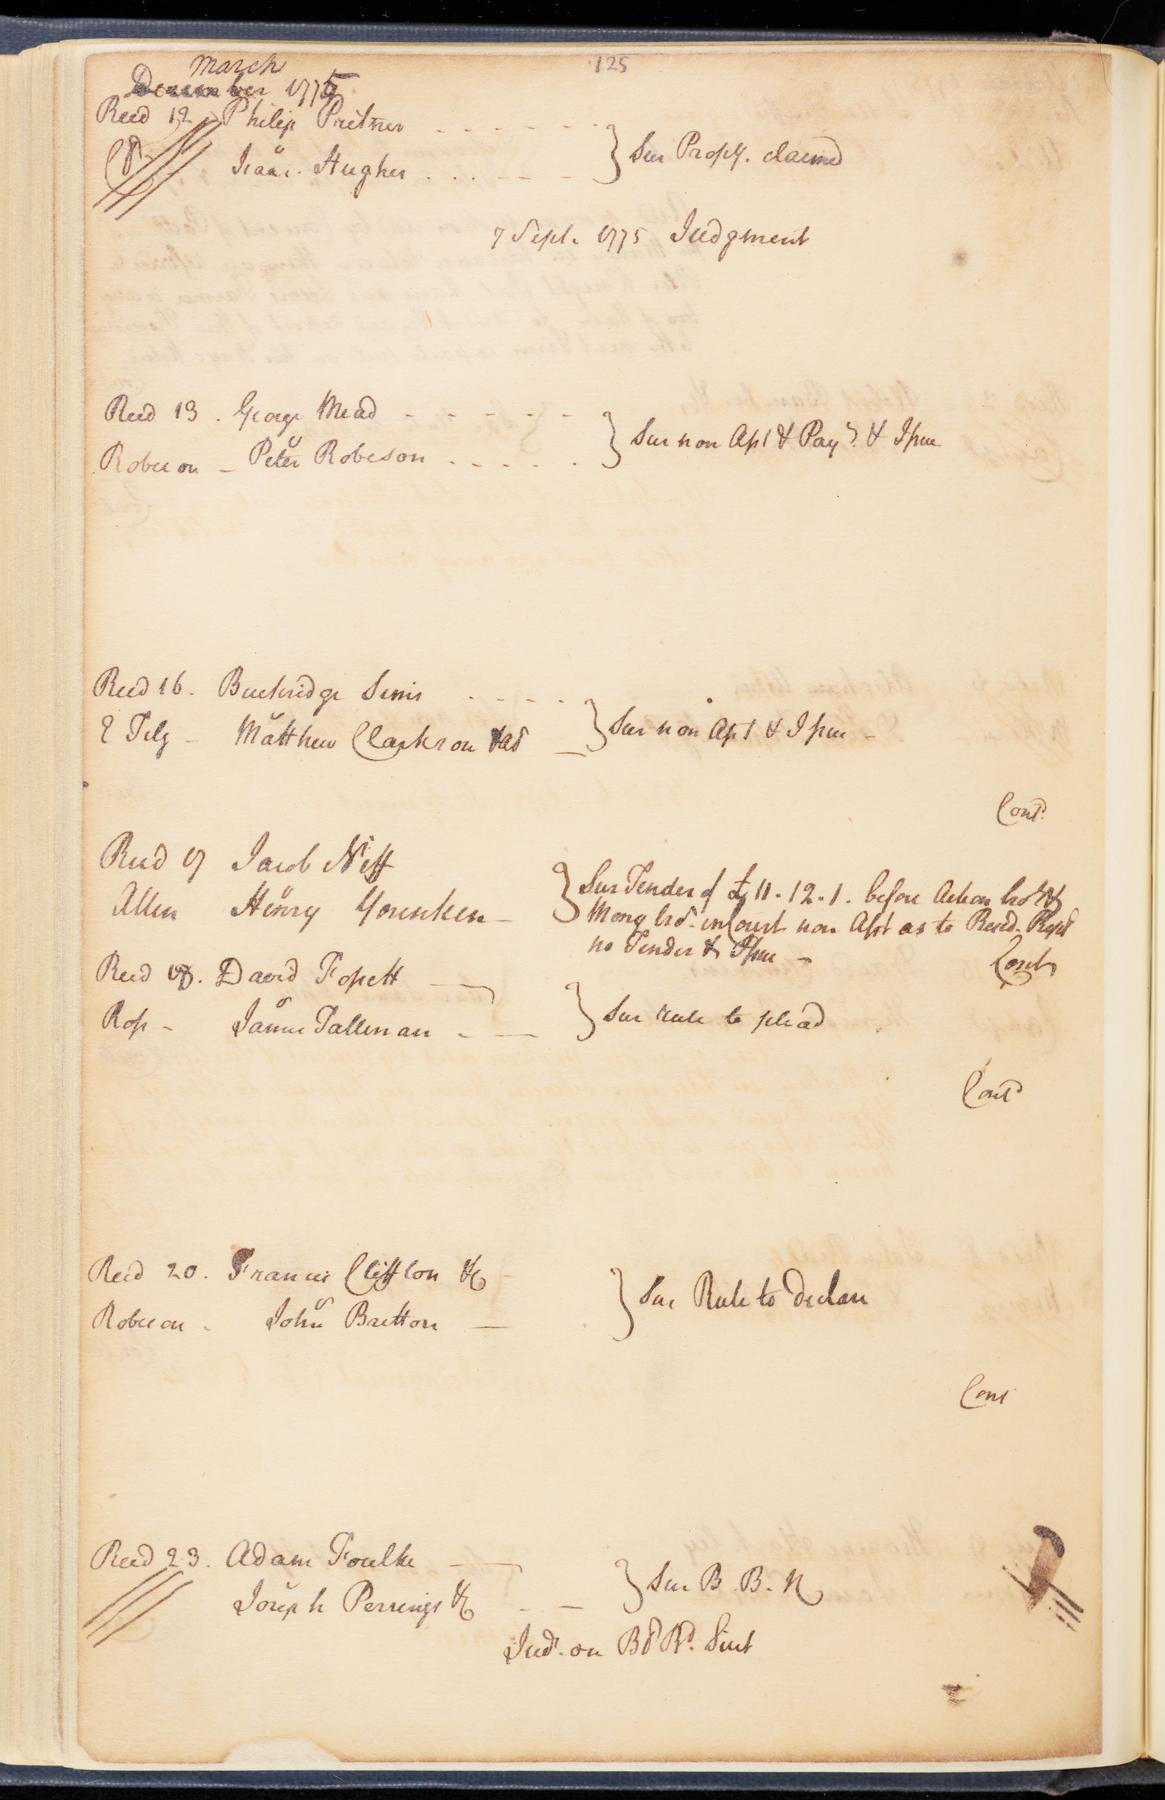 125
March
December 1775
Reed 12. Philip Pritner
Isaac Hughes
} Sur Propy. claimed
7 Sept. 1775 Judgment
Reed 13. George Mead
Robeson - Peter Robeson
} Sur non Asst & Paymt. & Issue
Reed 16. Buckridge Sims
E Tilg - Matthew Clarkson
} Sur non Asst & Issue -
Contd.
Reed 17 Jacob Neff
Allen Henry Younken -
} Sur Tender of £11.12.1. before Action bro't &
Mony bro't. in Court non Asst as to Resid. Repd
no Tender & Issue -
Contd
Reed 18. David Fossett
Ross - James Tallman
} Sur rule to plead
Contd
Reed 20. Francis Cliffton &c
Robeson - John Britton
} Sur Rule to declare
Cont
Reed 23. Adam Foulke
Joseph Perrings &c
} Sur B. B. R
Judt. on